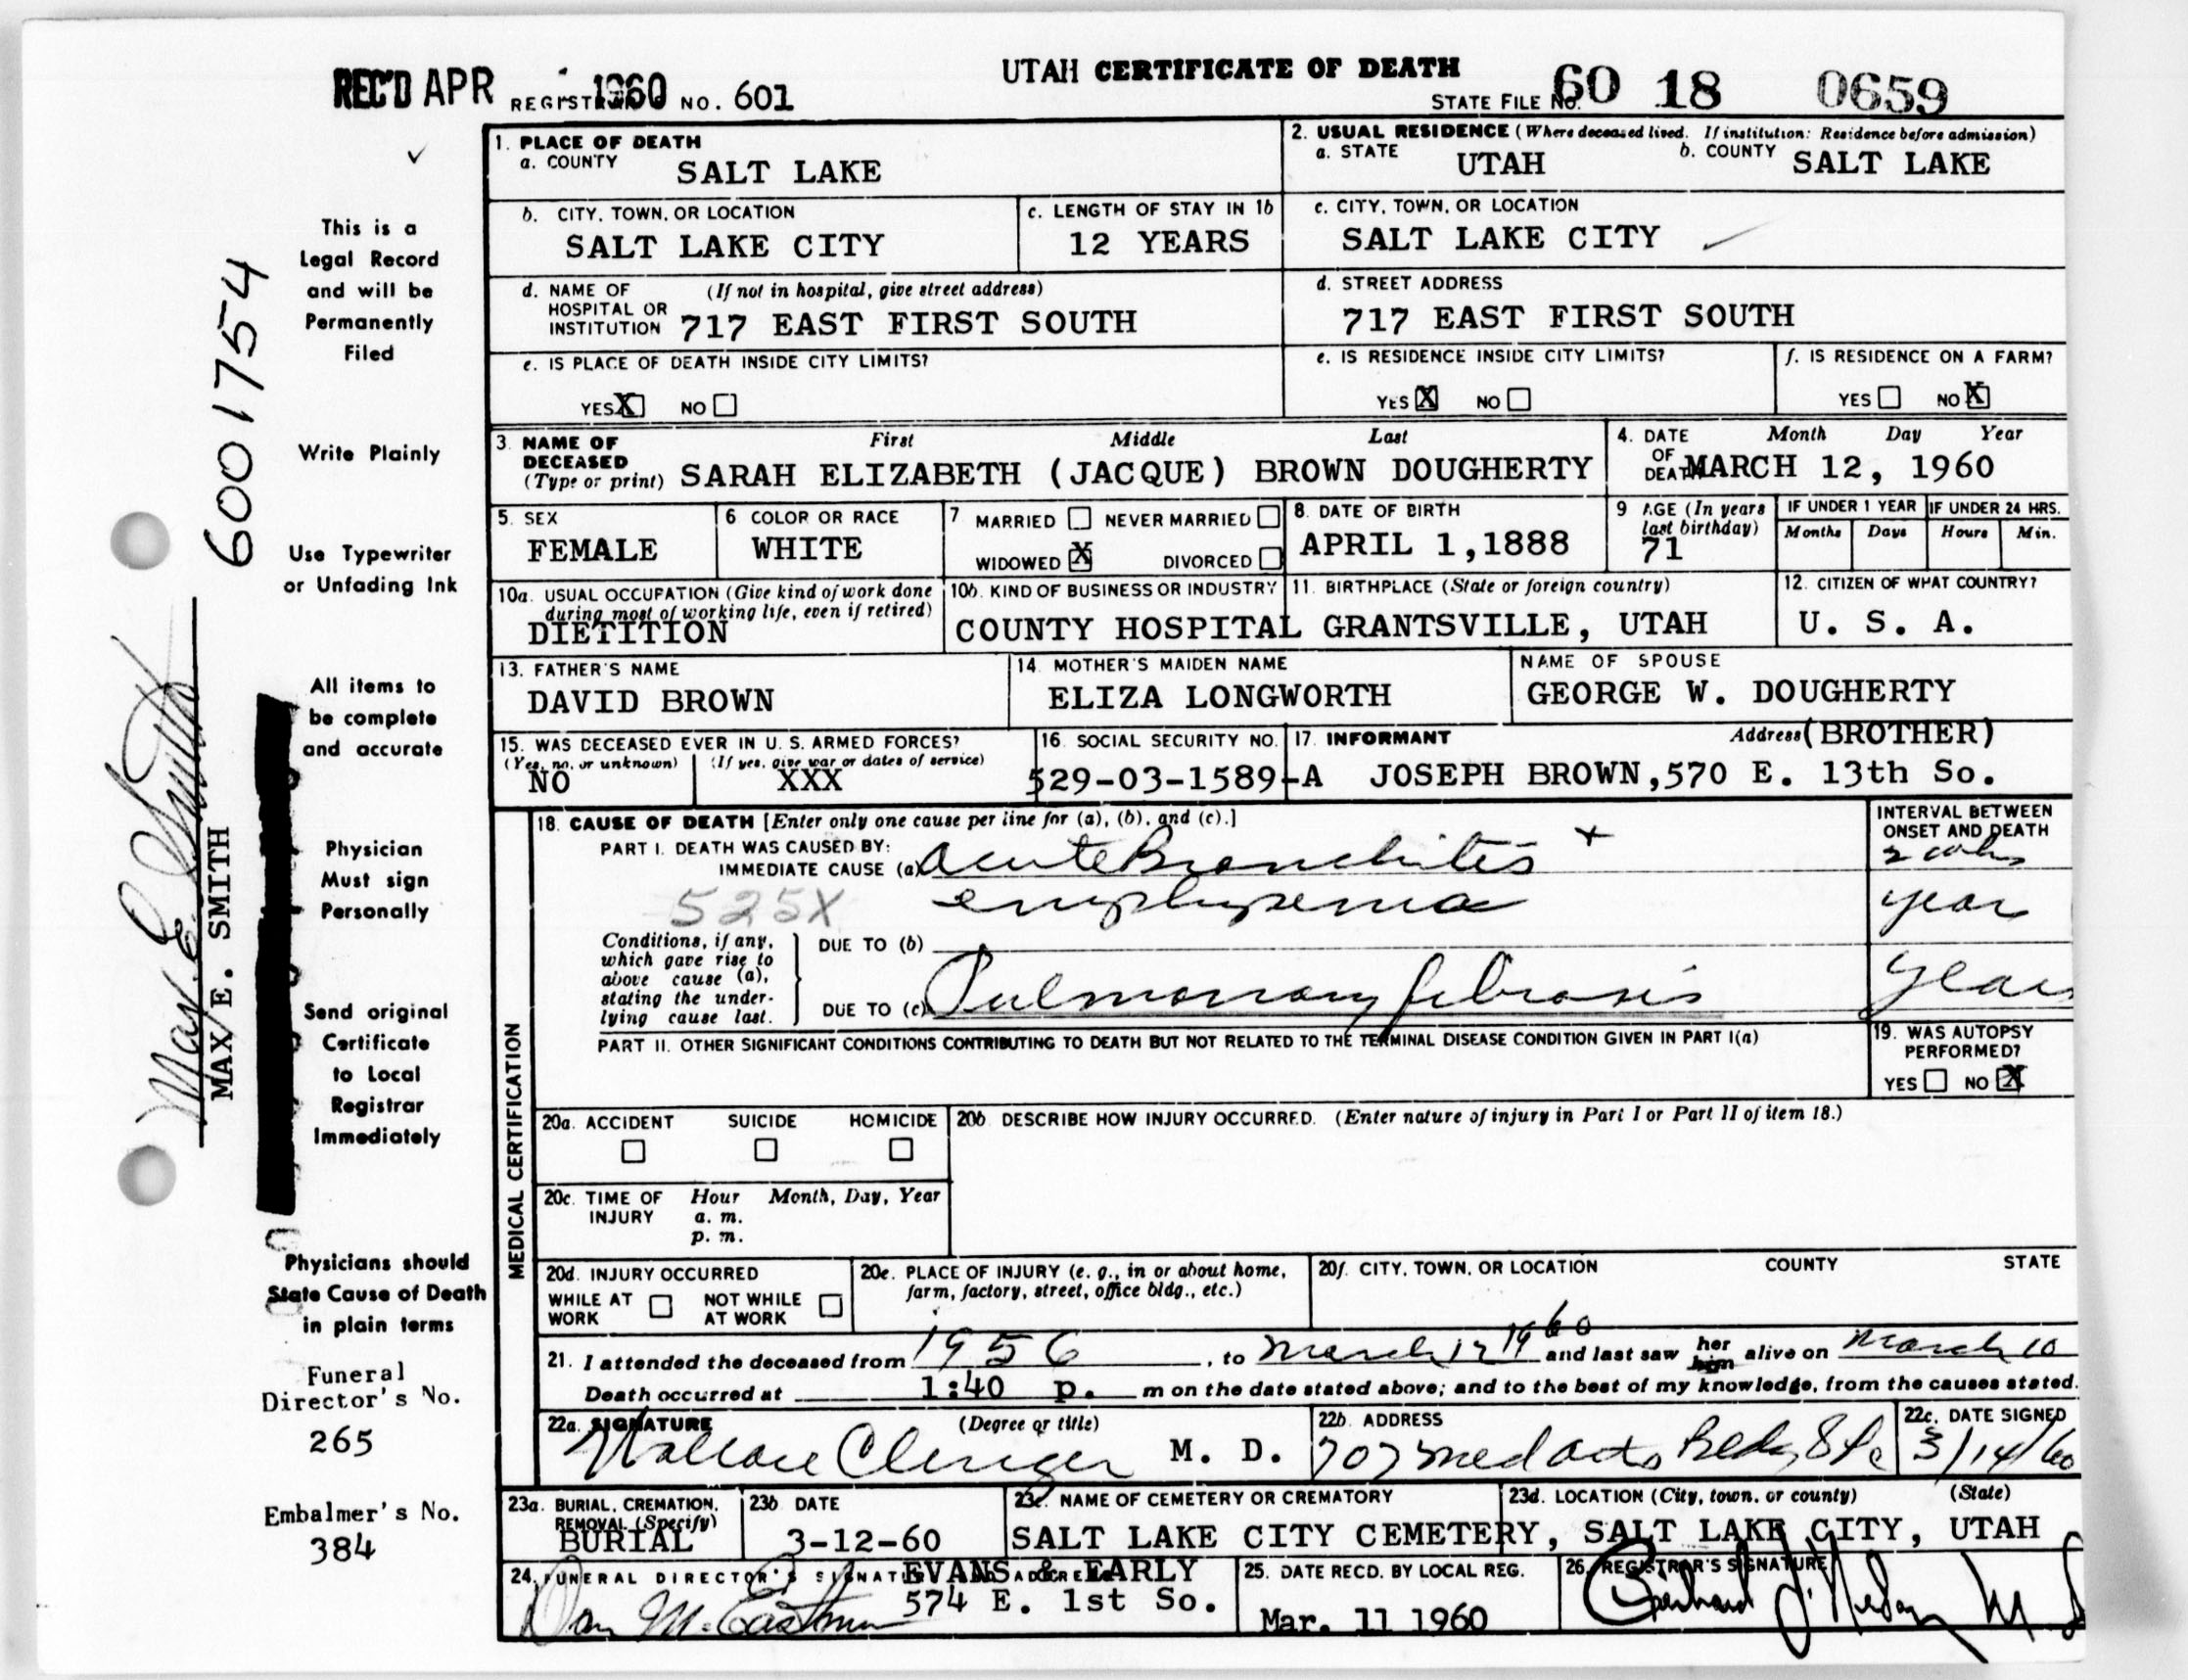 REC'D APR 1960
REGISTRAR'S NO. 601
UTAH CERTIFICATE OF DEATH
STATE FILE NO. 60 18 0659
1. PLACE OF DEATH
a. COUNTY SALT LAKE
2. USUAL RESIDENCE (Where deceased lived. If institution: Residence before admission)
a. STATE UTAH b. COUNTY SALT LAKE
b. CITY, TOWN, OR LOCATION
SALT LAKE CITY
c. LENGTH OF STAY IN 1b
12 YEARS
c. CITY, TOWN, OR LOCATION
SALT LAKE CITY
d. NAME OF HOSPITAL OR INSTITUTION (If not in hospital, give street address)
717 EAST FIRST SOUTH
d. STREET ADDRESS
717 EAST FIRST SOUTH
e. IS PLACE OF DEATH INSIDE CITY LIMITS?
YES X NO
e. IS RESIDENCE INSIDE CITY LIMITS?
YES X NO
f. IS RESIDENCE ON A FARM?
YES NO X
3. NAME OF DECEASED (Type or print) First Middle Last
SARAH ELIZABETH (JACQUE) BROWN DOUGHERTY
4. DATE OF DEATH Month Day Year
MARCH 12, 1960
5. SEX
FEMALE
6 COLOR OR RACE
WHITE
7 MARRIED NEVER MARRIED
WIDOWED X DIVORCED
8. DATE OF BIRTH
APRIL 1,1888
9 AGE (In years last birthday)
71
IF UNDER 1 YEAR
Months Days
IF UNDER 24 HRS.
Hours Min.
10a. USUAL OCCUPATION (Give kind of work done during most of working life, even if retired)
DIETITION
10b. KIND OF BUSINESS OR INDUSTRY
COUNTY HOSPITAL
11. BIRTHPLACE (State or foreign country)
GRANTSVILLE, UTAH
12. CITIZEN OF WHAT COUNTRY?
U. S. A.
13. FATHER'S NAME
DAVID BROWN
14. MOTHER'S MAIDEN NAME
ELIZA LONGWORTH
NAME OF SPOUSE
GEORGE W. DOUGHERTY
15. WAS DECEASED EVER IN U. S. ARMED FORCES?
(Yes, no, or unknown) (If yes, give war or dates of service)
NO XXX
16. SOCIAL SECURITY NO.
529-03-1589-A
17. INFORMANT Address (BROTHER)
JOSEPH BROWN,570 E. 13th So.
MEDICAL CERTIFICATION
18. CAUSE OF DEATH [Enter only one cause per line for (a), (b), and (c).]
PART I. DEATH WAS CAUSED BY:
IMMEDIATE CAUSE (a) acute Bronchitis +
525X emphysema
Conditions, if any, which gave rise to above cause (a), stating the underlying cause last.
DUE TO (b)
DUE TO (c) Pulmonary fibrosis
INTERVAL BETWEEN ONSET AND DEATH
2 wks
year
years
PART II. OTHER SIGNIFICANT CONDITIONS CONTRIBUTING TO DEATH BUT NOT RELATED TO THE TERMINAL DISEASE CONDITION GIVEN IN PART I(a)
19. WAS AUTOPSY PERFORMED?
YES NO X
20a. ACCIDENT SUICIDE HOMICIDE
20b DESCRIBE HOW INJURY OCCURRED. (Enter nature of injury in Part I or Part II of item 18.)
20c. TIME OF INJURY Hour Month, Day, Year
a. m.
p. m.
20d. INJURY OCCURRED
WHILE AT WORK NOT WHILE AT WORK
20e. PLACE OF INJURY (e. g., in or about home, farm, factory, street, office bldg., etc.)
20f. CITY, TOWN, OR LOCATION COUNTY STATE
21. I attended the deceased from 1956, to March 12 1960 and last saw her him alive on March 10
Death occurred at 1:40 p. m on the date stated above; and to the best of my knowledge, from the causes stated.
22a. SIGNATURE (Degree or title)
Wallace Clinger M. D.
22b. ADDRESS
707 Med Arts Bldg SLC
22c. DATE SIGNED
3/14/60
23a. BURIAL, CREMATION, REMOVAL (Specify)
BURIAL
23b DATE
3-12-60
23c. NAME OF CEMETERY OR CREMATORY
SALT LAKE CITY CEMETERY,
23d. LOCATION (City, town, or county) (State)
SALT LAKE CITY, UTAH
24. FUNERAL DIRECTOR'S SIGNATURE AND ADDRESS
EVANS & EARLY
574 E. 1st So.
Dan M. Eastman
25. DATE RECD. BY LOCAL REG.
Mar. 11 1960
26. REGISTRAR'S SIGNATURE
This is a
Legal Record
and will be
Permanently
Filed
Write Plainly
Use Typewriter
or Unfading Ink
All items to
be complete
and accurate
Physician
Must sign
Personally
Send original
Certificate
to Local
Registrar
Immediately
Physicians should
State Cause of Death
in plain terms
Funeral
Director's No.
265
Embalmer's No.
384
6001754
Max E. Smith
MAX E. SMITH